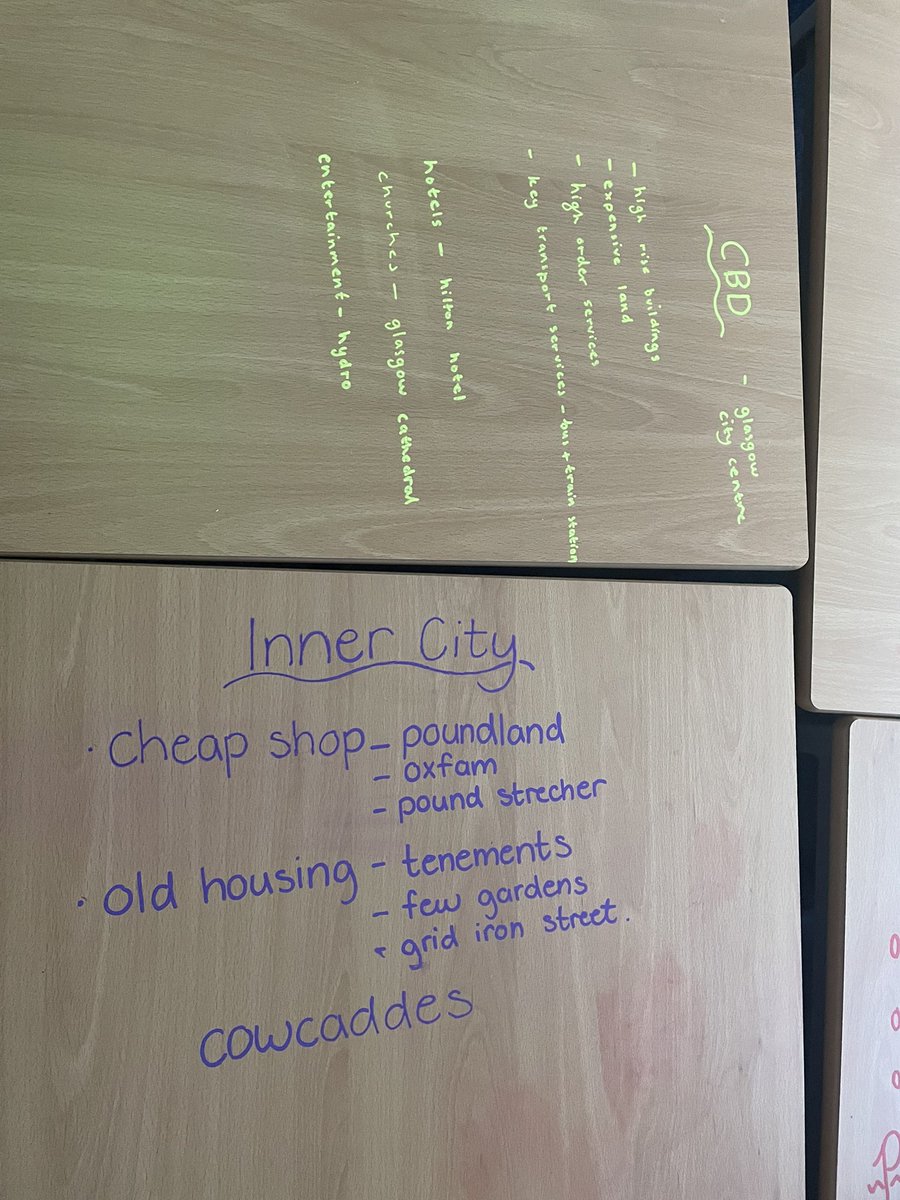 CBD - glasgow
city centre
- high rise buildings
- expensive land
- high order services
- key transport services - bus + train station
hotels - hilton hotel
churches - glasgow cathedral
entertainment - hydro
Inner City
· cheap shop - poundland
- oxfam
- pound strecher
· old housing - tenements
- few gardens
- grid iron street.
cowcaddes